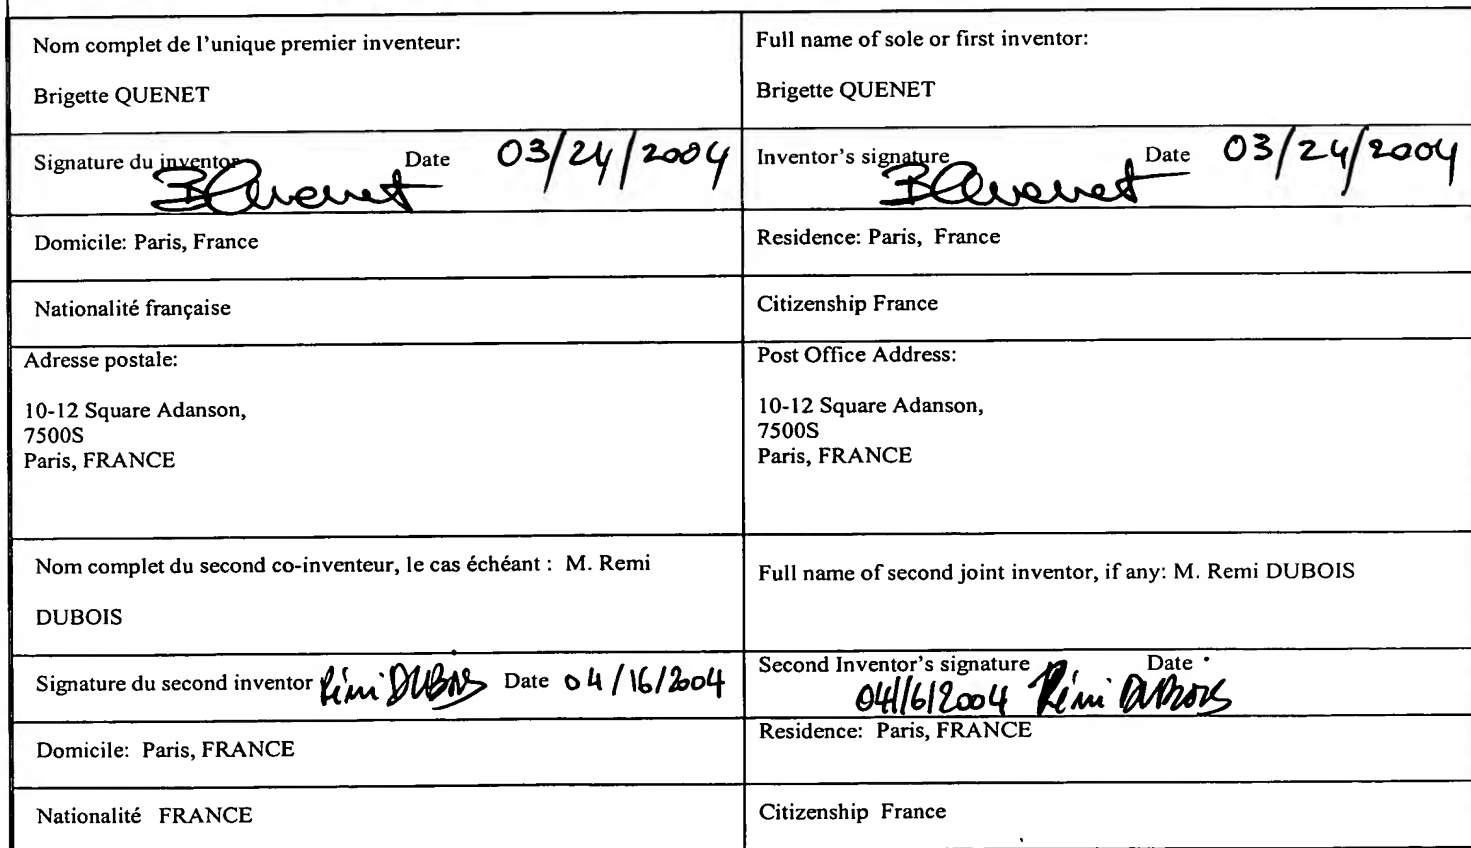 Nom complet de l'unique premier inventeur:
Brigette QUENET
Full name of sole or first inventor:
Brigette QUENET
Signature du inventor BQuenet Date 03/24/2004
Inventor's signature BQuenet Date 03/24/2004
Domicile: Paris, France
Residence: Paris, France
Nationalité française
Citizenship France
Adresse postale:
10-12 Square Adanson,
7500S
Paris, FRANCE
Post Office Address:
10-12 Square Adanson,
7500S
Paris, FRANCE
Nom complet du second co-inventeur, le cas échéant : M. Remi
DUBOIS
Full name of second joint inventor, if any: M. Remi DUBOIS
Signature du second inventor Rémi DUBOIS Date 04/16/2004
Second Inventor's signature Date
04/16/2004 Rémi DUBOIS
Domicile: Paris, FRANCE
Residence: Paris, FRANCE
Nationalité FRANCE
Citizenship France